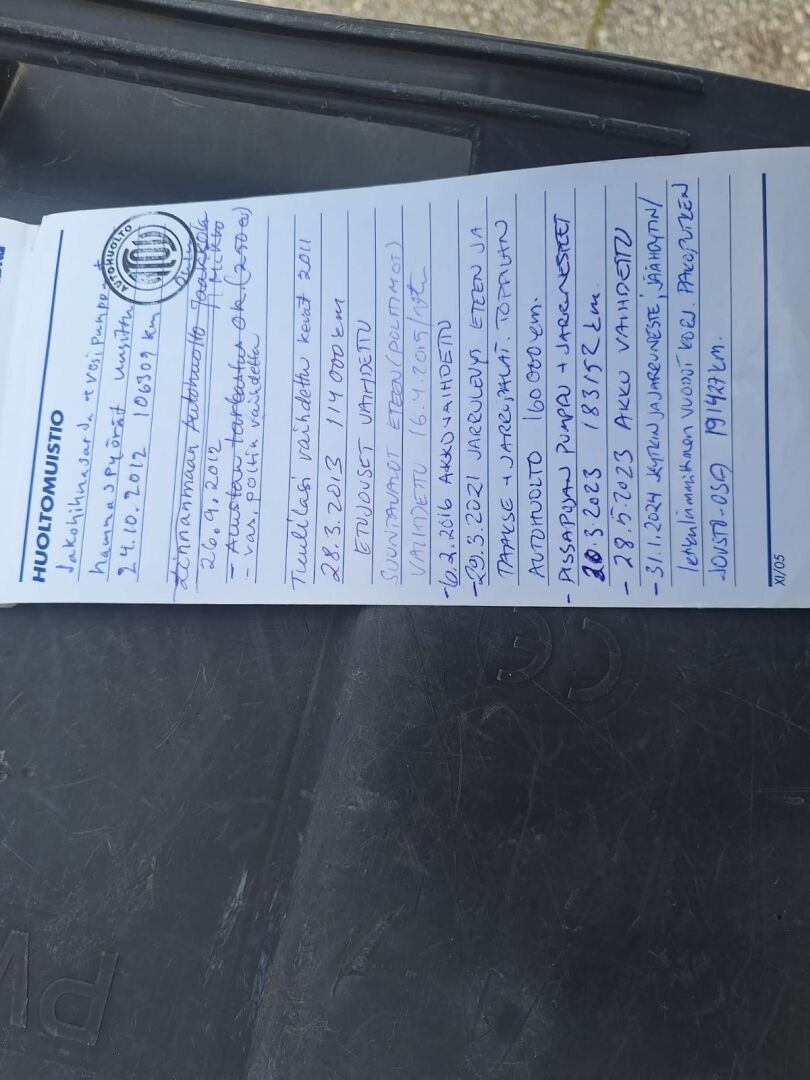 HUOLTOMUISTIO
Jakohihnasarja + vesipumppu
hammaspyörät uusittu
24.10.2012 106309 km
AUTOHUOLTO
ATOJ
Linnanmaan Autohuolto Jaakkola
26.9.2012 Mikko
- Alustan tarkastus ok (250 eu)
- vas. poltin vaihdettu
Tuulilasi vaihdettu kevät 2011
28.3.2013 114 000 km
ETUJOUSET VAIHDETTU
SUUNTAVALOT ETEEN (POLTTIMOT)
VAIHDETTU 16.4.2015
- 6.2.2016 AKKU VAIHDETTU
- 29.3.2021 JARRULEVYT ETEEN JA
TAAKSE + JARRUPALAT. TOPPILAN
AUTOHUOLTO 160 000 km.
- PISSAPOJAN PUMPPU + JARRUNESTEET
20.3.2023 183152 km.
- 28.5.2023 AKKU VAIHDETTU
- 31.1.2024 JA JARRUNESTE, JÄÄHDYTIN/
VUODOT KORJ. PAKOPUTKEN
JOUSTO-OSA 191427 km.
XI/05
PV